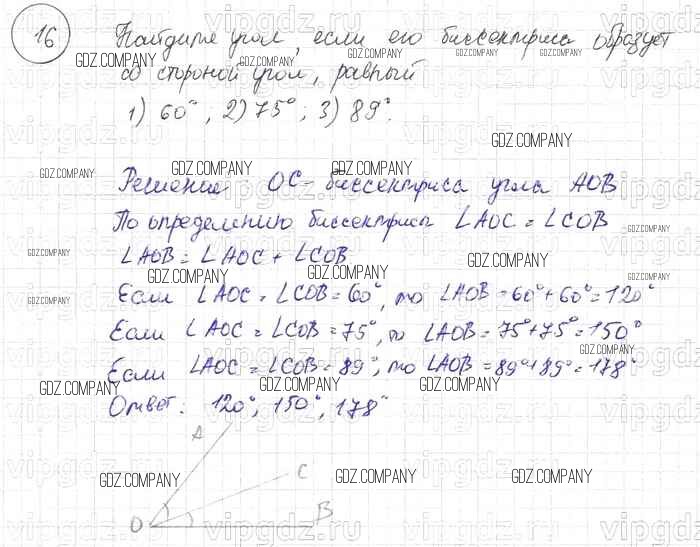 16
Найдите угол, если его биссектриса образует
со стороной угол, равный
1) 60°; 2) 75°; 3) 89°.
Решение OC - биссектриса угла AOB
По определению биссектрисы ∠AOC = ∠COB
∠AOB = ∠AOC + ∠COB
Если ∠AOC = ∠COB = 60°, то ∠AOB = 60° + 60° = 120°
Если ∠AOC = ∠COB = 75°, то ∠AOB = 75° + 75° = 150°
Если ∠AOC = ∠COB = 89°, то ∠AOB = 89° + 89° = 178°
Ответ: 120°, 150°, 178°
A
C
O B
GDZ.COMPANY
vipgdz.ru